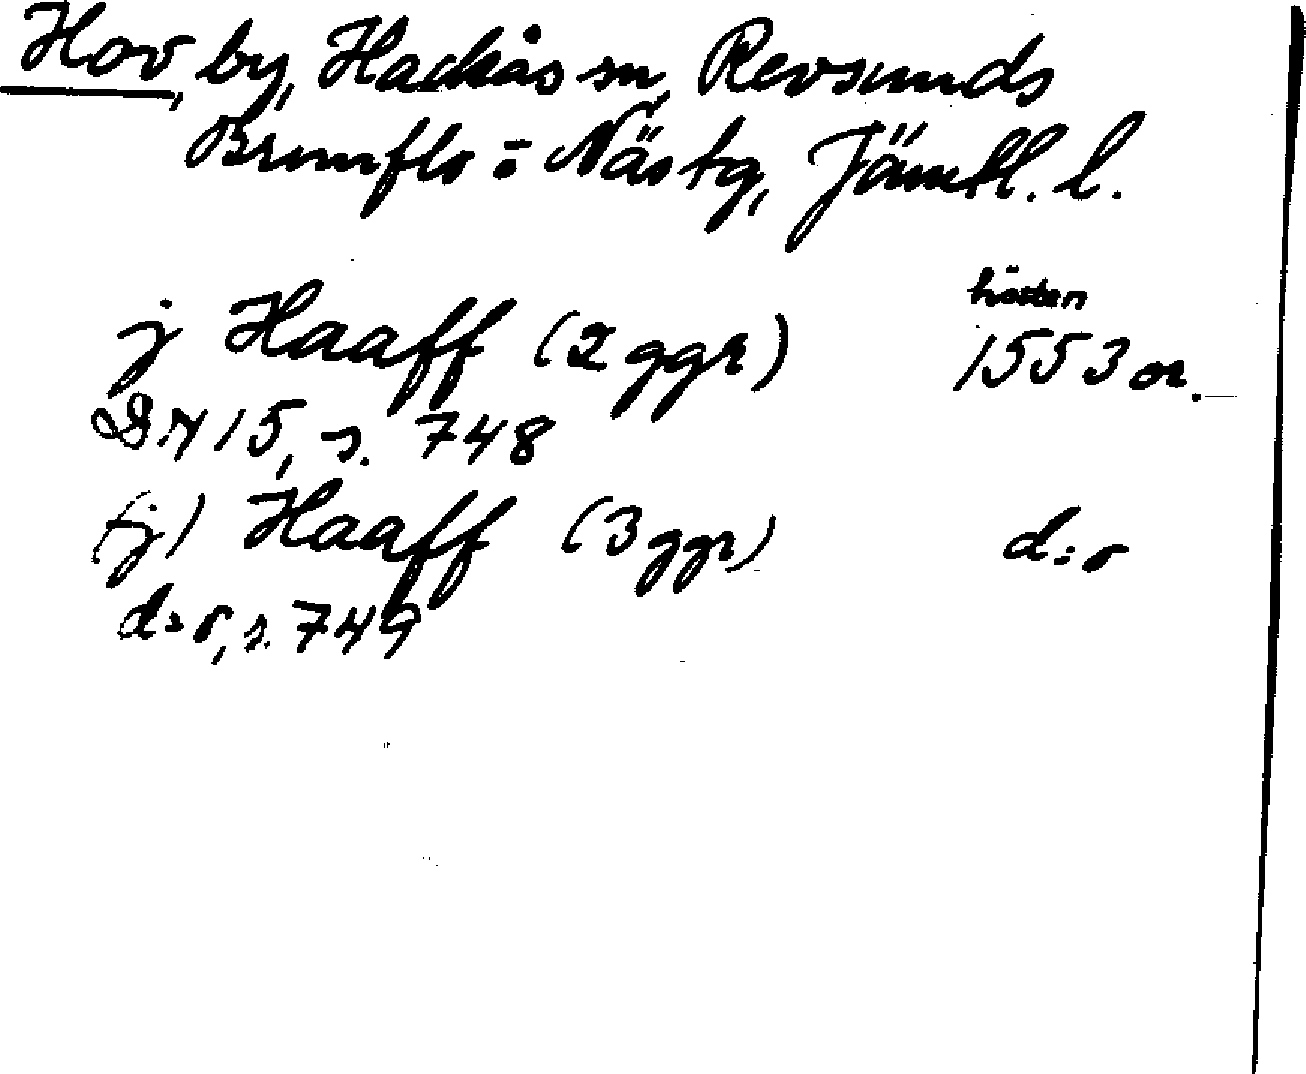 Hov, by, Hackås sn, Revsunds
Brunflo o Näs tg, Jämtl. l.
hösten
j Haaff (2 ggr) 1553 or.
DN 15, s. 748
(j) Haaff (3 ggr) d:o
d:o, s. 749